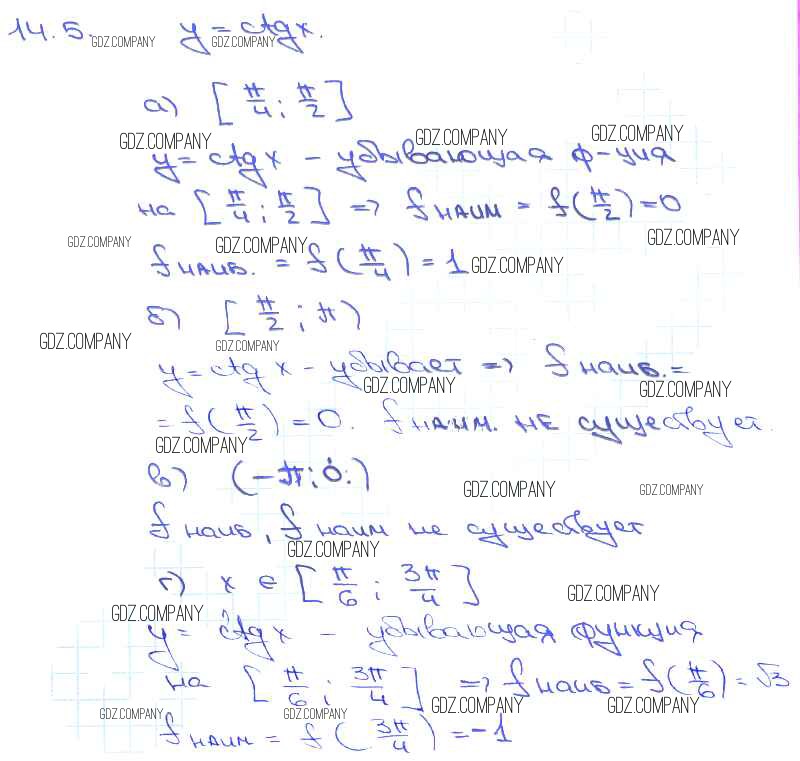 14.5. y = ctgx.
GDZ.COMPANY GDZ.COMPANY
а) [π/4; π/2]
GDZ.COMPANY GDZ.COMPANY GDZ.COMPANY
y = ctg x – убывающая ф-ция
на [π/4; π/2] => f наим = f(π/2) = 0
GDZ.COMPANY GDZ.COMPANY GDZ.COMPANY
f наиб. = f(π/4) = 1 GDZ.COMPANY
б) [π/2; π)
GDZ.COMPANY GDZ.COMPANY
y = ctg x – убывает => f наиб. =
GDZ.COMPANY GDZ.COMPANY
= f(π/2) = 0. f наим. не существует.
GDZ.COMPANY
в) (-π; 0)
GDZ.COMPANY GDZ.COMPANY
f наиб, f наим не существует
GDZ.COMPANY
г) x ∈ [π/6; 3π/4]
GDZ.COMPANY
GDZ.COMPANY
y = ctg x – убывающая функция
на [π/6; 3π/4] => f наиб = f(π/6) = √3
GDZ.COMPANY GDZ.COMPANY GDZ.COMPANY GDZ.COMPANY
f наим = f(3π/4) = -1